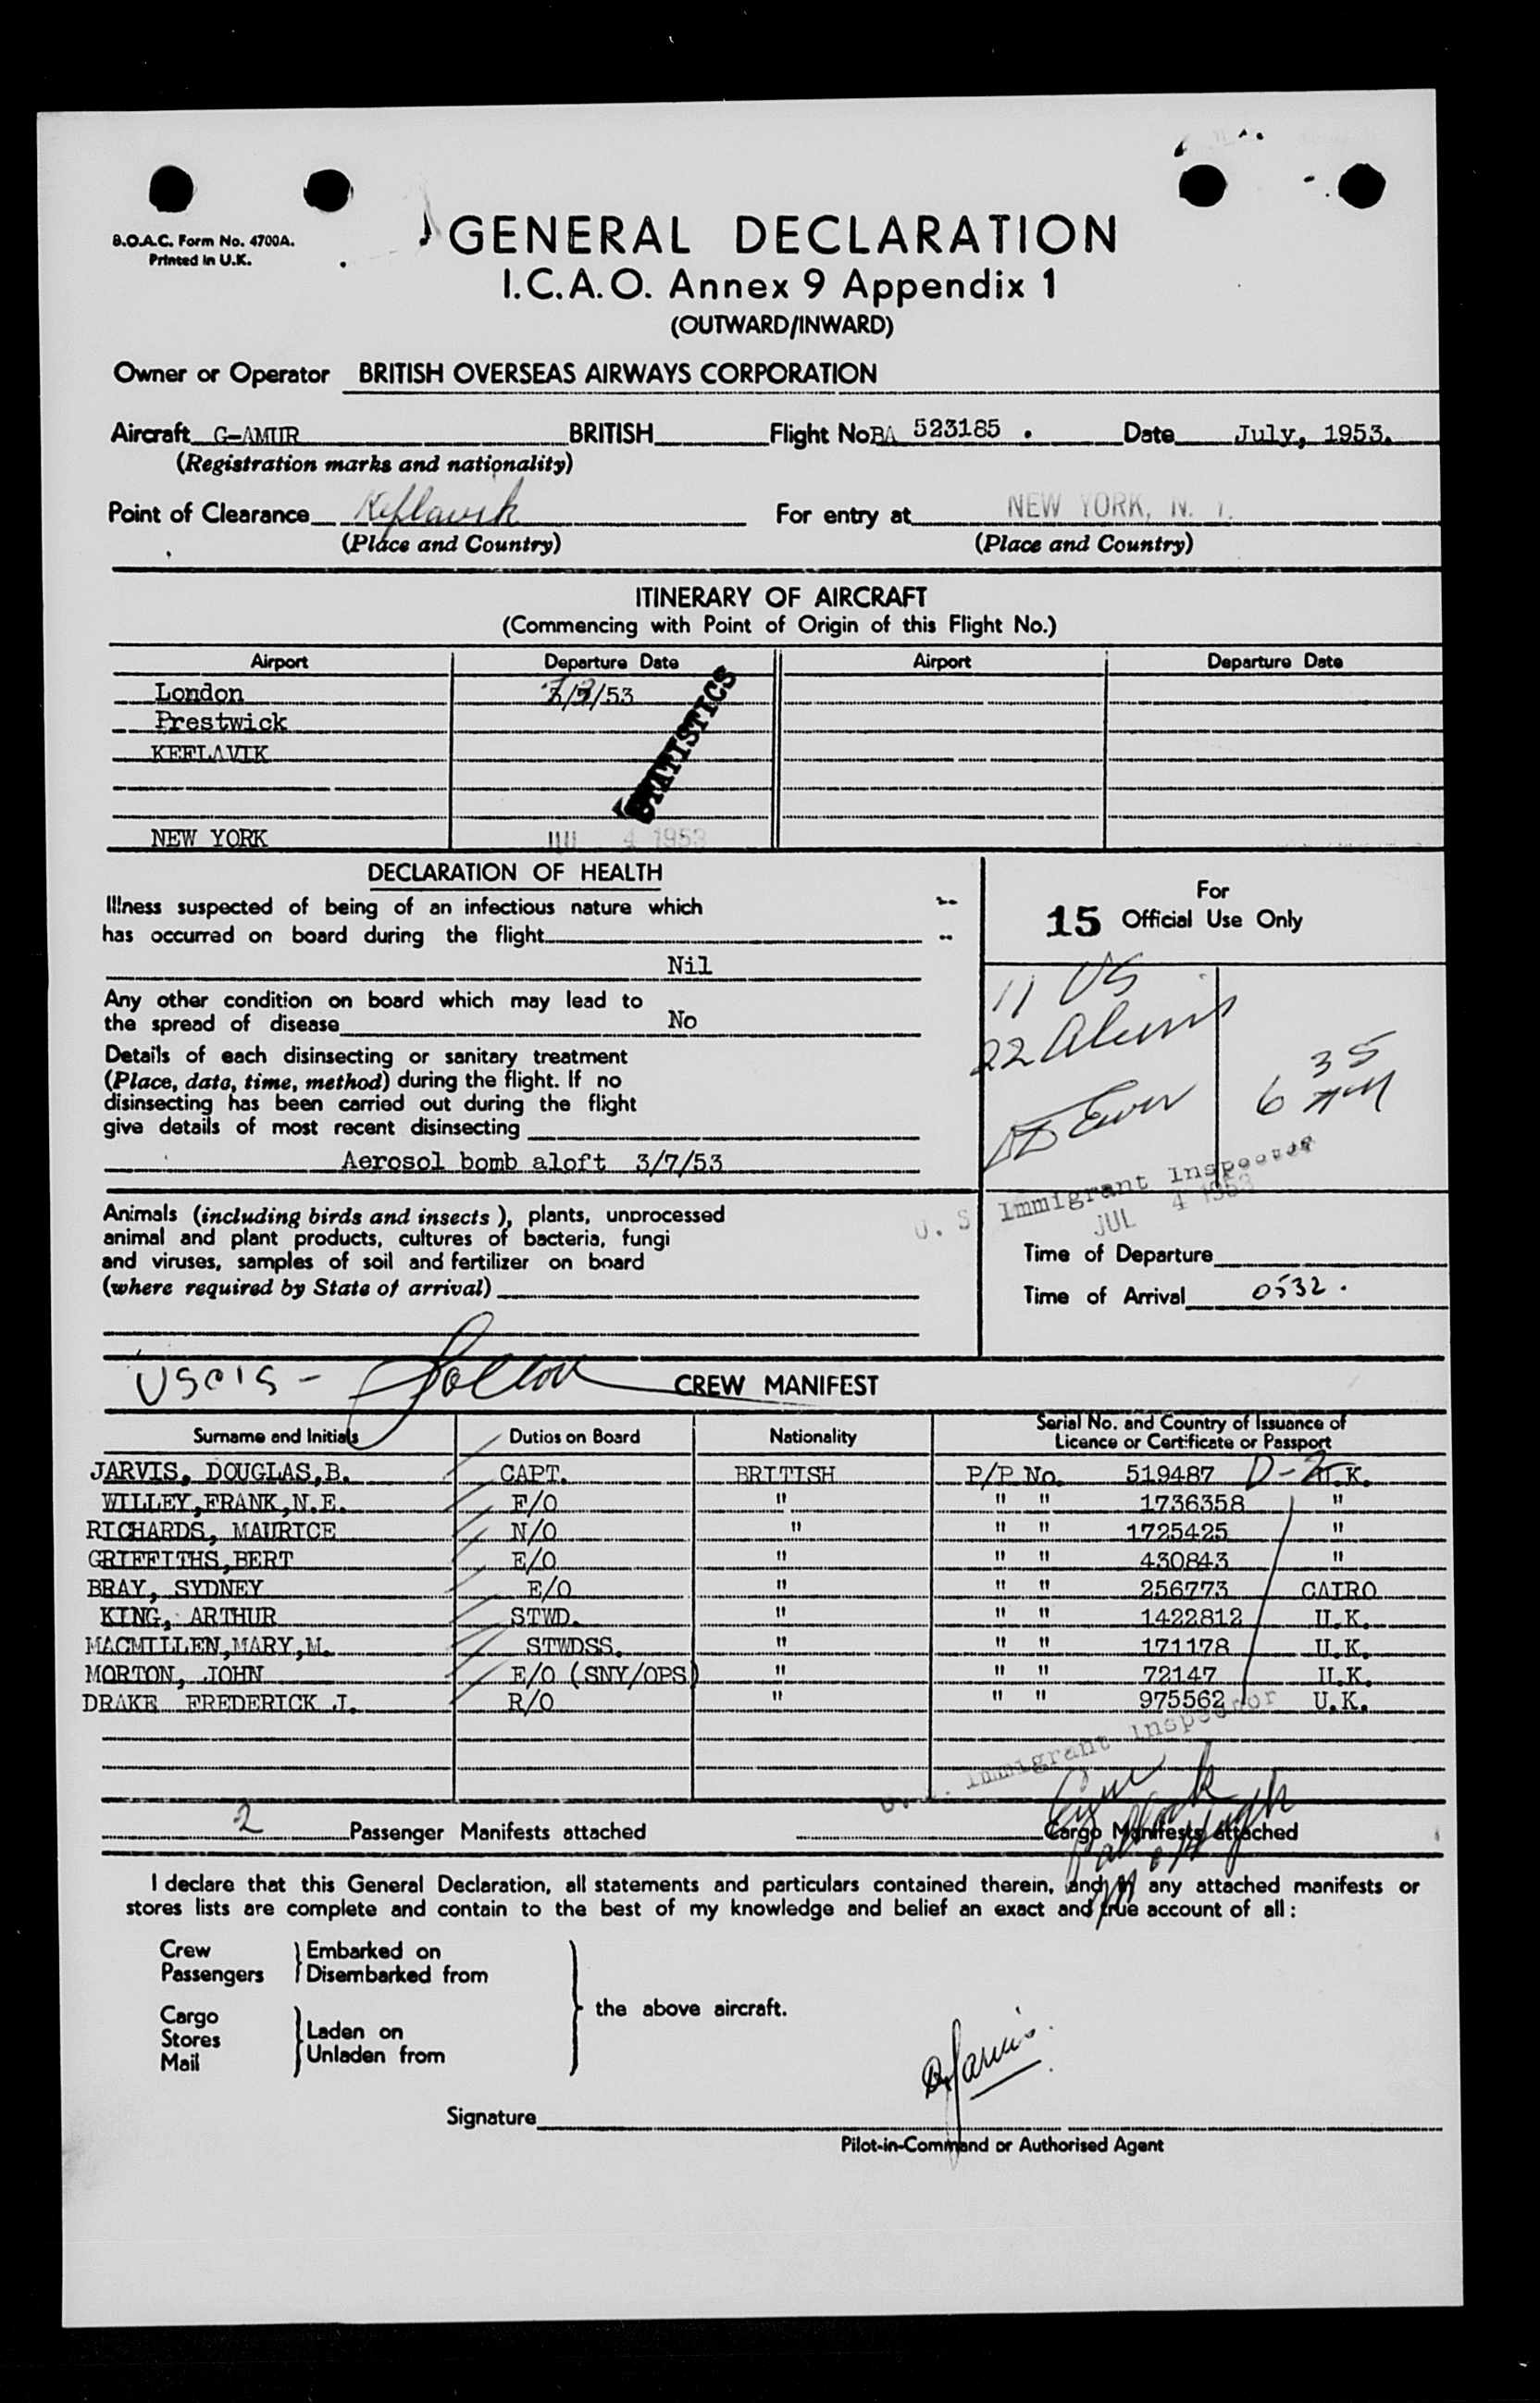 B.O.A.C. Form No. 4700A.
Printed in U.K.
GENERAL DECLARATION
I.C.A.O. Annex 9 Appendix 1
(OUTWARD/INWARD)
Owner or Operator BRITISH OVERSEAS AIRWAYS CORPORATION
Aircraft G-AMUR BRITISH Flight No BA 523185 . Date July, 1953.
(Registration marks and nationality)
Point of Clearance Keflavik For entry at NEW YORK, N. Y.
(Place and Country) (Place and Country)
ITINERARY OF AIRCRAFT
(Commencing with Point of Origin of this Flight No.)
Airport Departure Date Airport Departure Date
London /53
Prestwick
KEFLAVIK
STATISTICS
NEW YORK JUL 4 1953
DECLARATION OF HEALTH
Illness suspected of being of an infectious nature which --
has occurred on board during the flight --
Nil
Any other condition on board which may lead to
the spread of disease No
Details of each disinsecting or sanitary treatment
(Place, date, time, method) during the flight. If no
disinsecting has been carried out during the flight
give details of most recent disinsecting
Aerosol bomb aloft 3/7/53
Animals (including birds and insects), plants, unprocessed
animal and plant products, cultures of bacteria, fungi
and viruses, samples of soil and fertilizer on board
(where required by State of arrival)
For
15 Official Use Only
11 US
22 Aliens
6 35 AM
U. S. Immigrant Inspector
JUL 4 1953
Time of Departure
Time of Arrival 0532 .
CREW MANIFEST
Surname and Initials Duties on Board Nationality Serial No. and Country of Issuance of
Licence or Certificate or Passport
JARVIS, DOUGLAS,B. CAPT. BRITISH P/P No. 519487 D-2 U.K.
WILLEY,FRANK,N.E. F/O " " " 1736358 "
RICHARDS, MAURICE N/O " " " 1725425 "
GRIFFITHS,BERT E/O " " " 430843 "
BRAY, SYDNEY E/O " " " 256773 CAIRO
KING, ARTHUR STWD. " " " 1422812 U.K.
MACMILLEN,MARY,M. STWDSS. " " " 171178 U.K.
MORTON, JOHN E/O (SNY/OPS) " " " 72147 U.K.
DRAKE FREDERICK J. R/O " " " 975562 U.K.
U. S. Immigrant Inspector
2 Passenger Manifests attached Cargo Manifests attached
I declare that this General Declaration, all statements and particulars contained therein, and in any attached manifests or
stores lists are complete and contain to the best of my knowledge and belief an exact and true account of all:
Crew Embarked on
Passengers Disembarked from
the above aircraft.
Cargo
Stores Laden on
Mail Unladen from
D Jarvis.
Signature
Pilot-in-Command or Authorised Agent